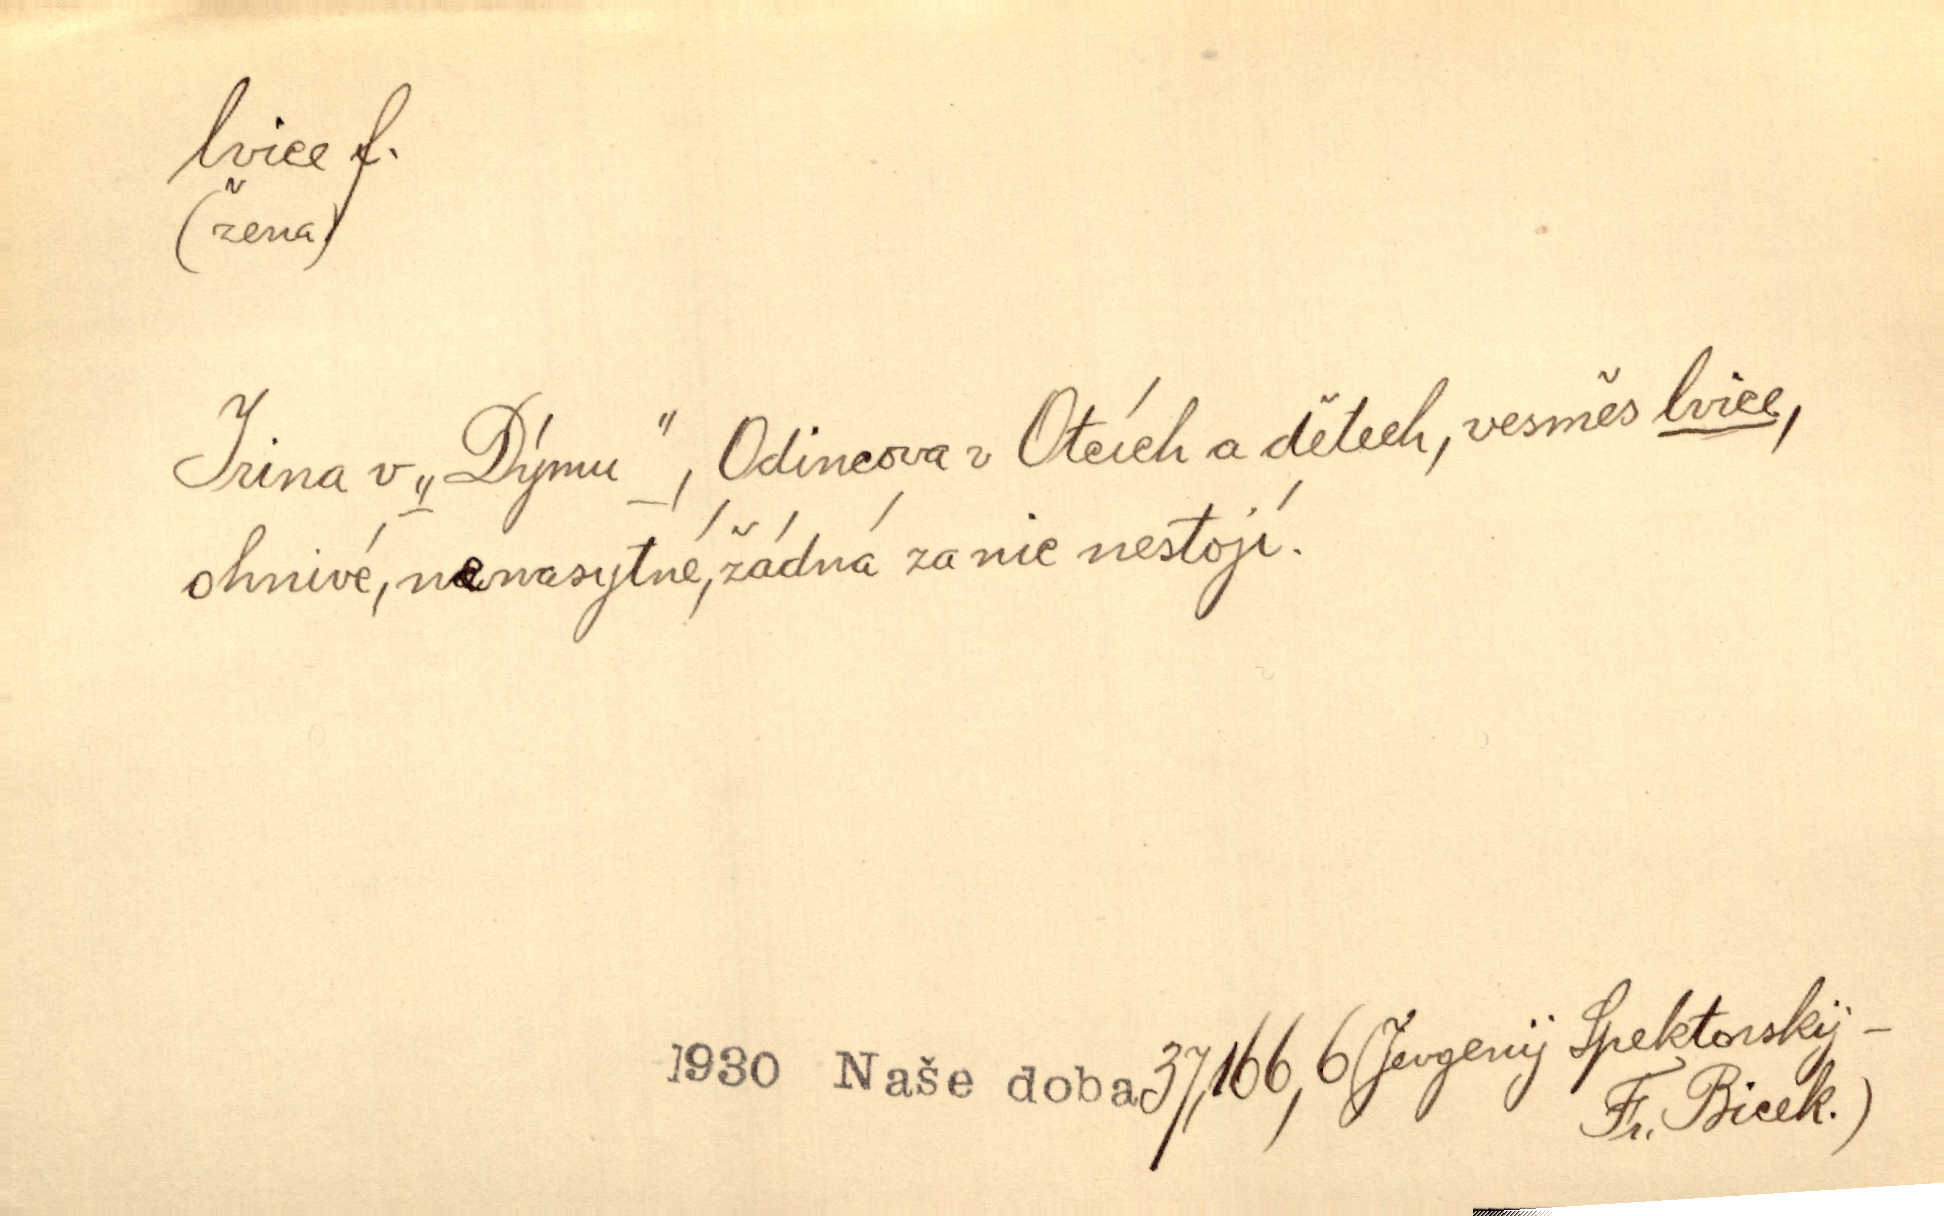 lvice f.
(žena)
Irina v „Dýmu“, Odincova v Otcích a dětech, vesměs lvice,
ohnivé, nenasytné, žádná za nic nestojí.
1930 Naše doba 37, 166, 6 (Jevgenij Spektorskij –
Fr. Bicek.)